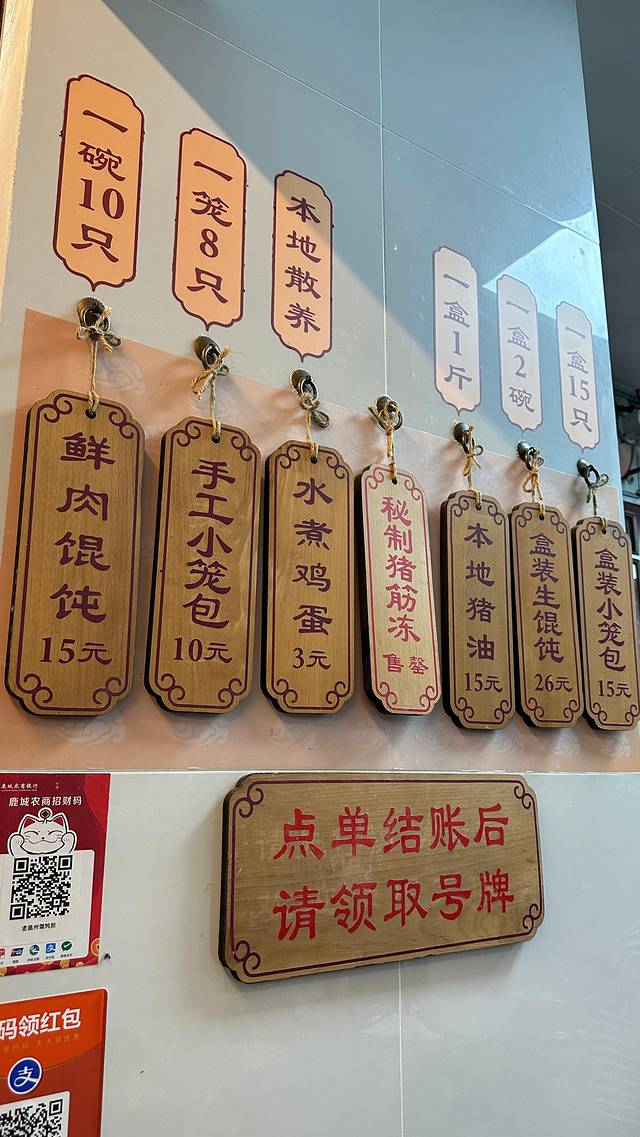 一碗10只
一笼8只
本地散养
一盒1斤
一盒2碗
一盒15只
鲜肉馄饨
15元
手工小笼包
10元
水煮鸡蛋
3元
秘制猪筋冻
售罄
本地猪油
15元
盒装生馄饨
26元
盒装小笼包
15元
点单结账后
请领取号牌
鹿城农商银行
鹿城农商招财码
码领红包